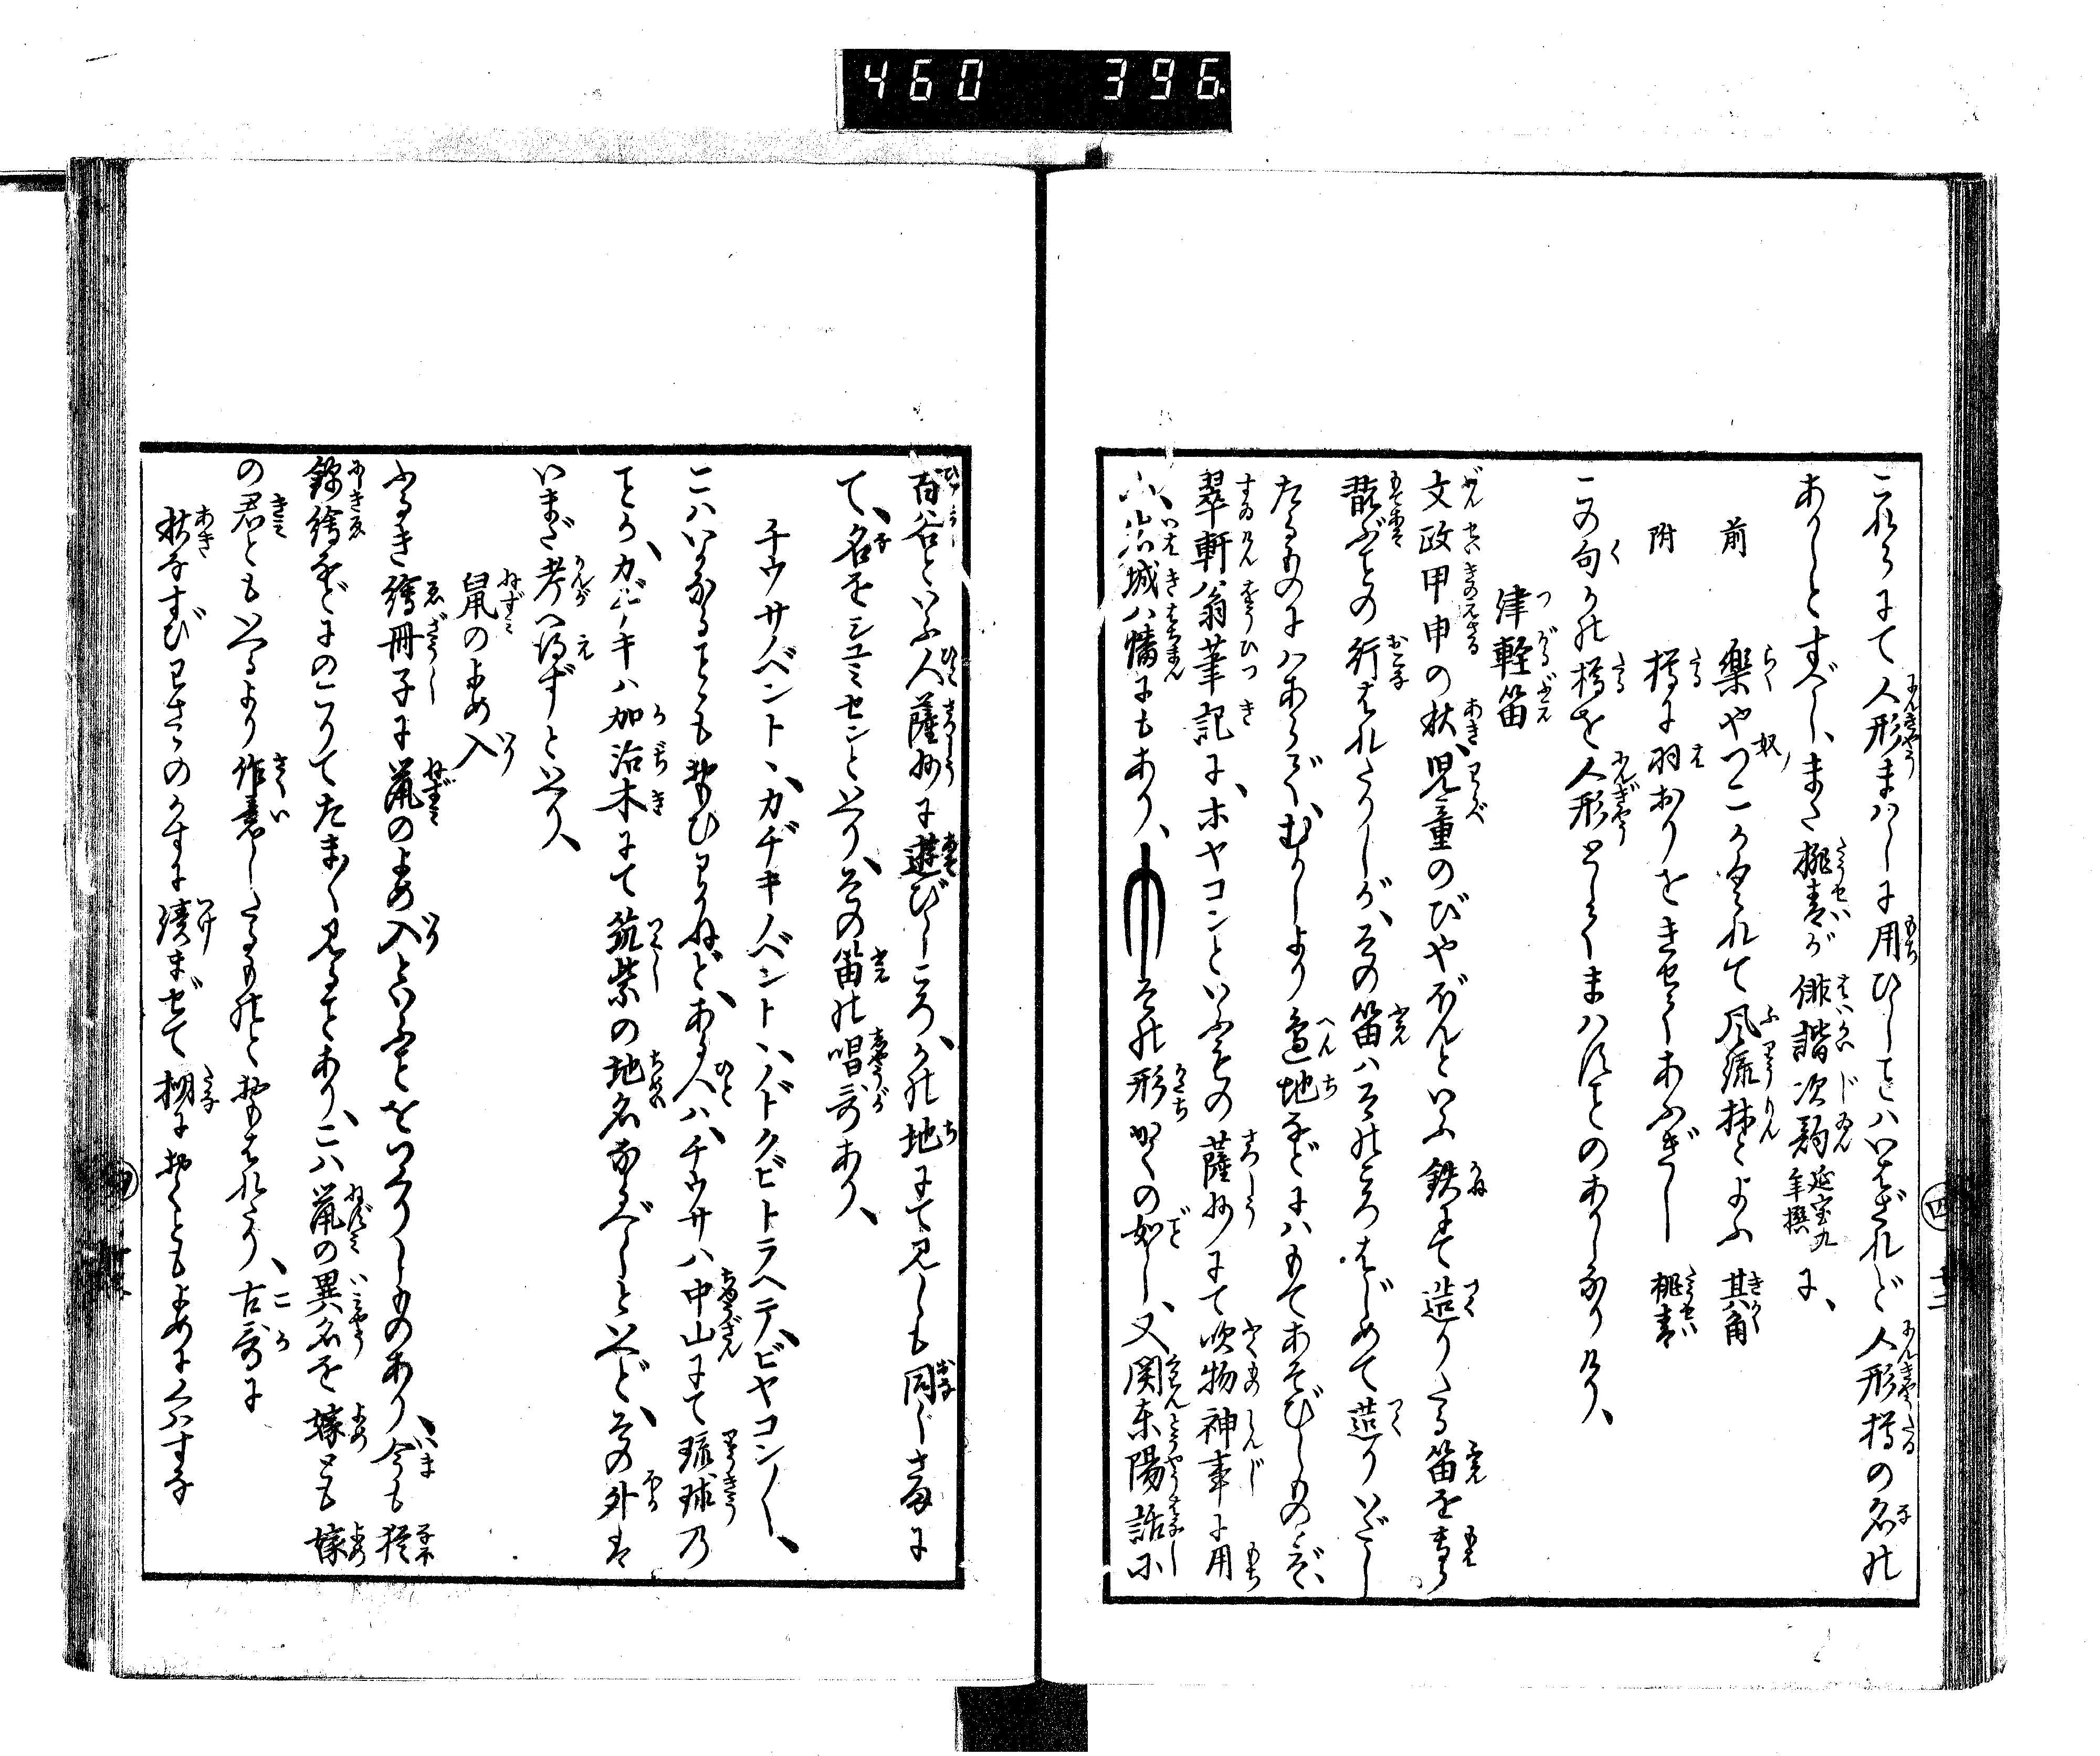 460 396
これらにて人形まはしに用ひしとはいはざれど人形樽の名の
ありとすべし、また桃青が俳諧次韻延宝九年撰に、
前 楽やつこかくれて風流林とよふ 其角
附 樽に羽おりをきせてあふぎし 桃青
この句かの樽を人形としてまはすことのありしなりけり、
津軽笛
文政甲申の秋、児童のびやぼんといふ鉄にて造りたる笛を
翫ぶとの行はれたりしが、その笛はそのころはじめて造りいだし
たるものにはあらで、むかしより邉地などにはもてあそびしものぞ、
翠軒翁筆記に、ホヤコンといふもの薩州にて吹物神事に用
ふ、岩城八幡にもあり、その形かくの如し、又関東陽話に
百谷といふ人薩州に遊びしころ、かの地にて見しも同じさまに
て、名をシユミセンといへり、その笛の唱哥あり、
チウサノベントヽ、カヂキノベントハ、ドクビトラヘテ、ビヤコン〳〵、
こハいかなることも知りわかねど、ある人ハ、チウサハ中山にて琉球乃
ことか、カヂキハ加治木にて筑紫の地名なるべしといへど、その外は
いまだ考へ得ずといへり、
鼠のよめ入
ふるき繪冊子に鼠のよめ入といふことをいへりしものあり、今も猶
錦繪などにのこりてたま〳〵見ることあり、こハ鼠の異名を嫁とも嫁
の君ともいへるより作意したるものと知られたり、古哥に
秋なすびわさゝのかすに漬まぜて棚におくともよめにくはすな